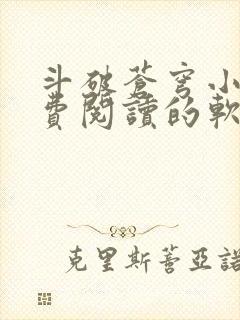 斗破蒼穹小
費閱讀的軟
克里斯蒂亞諾